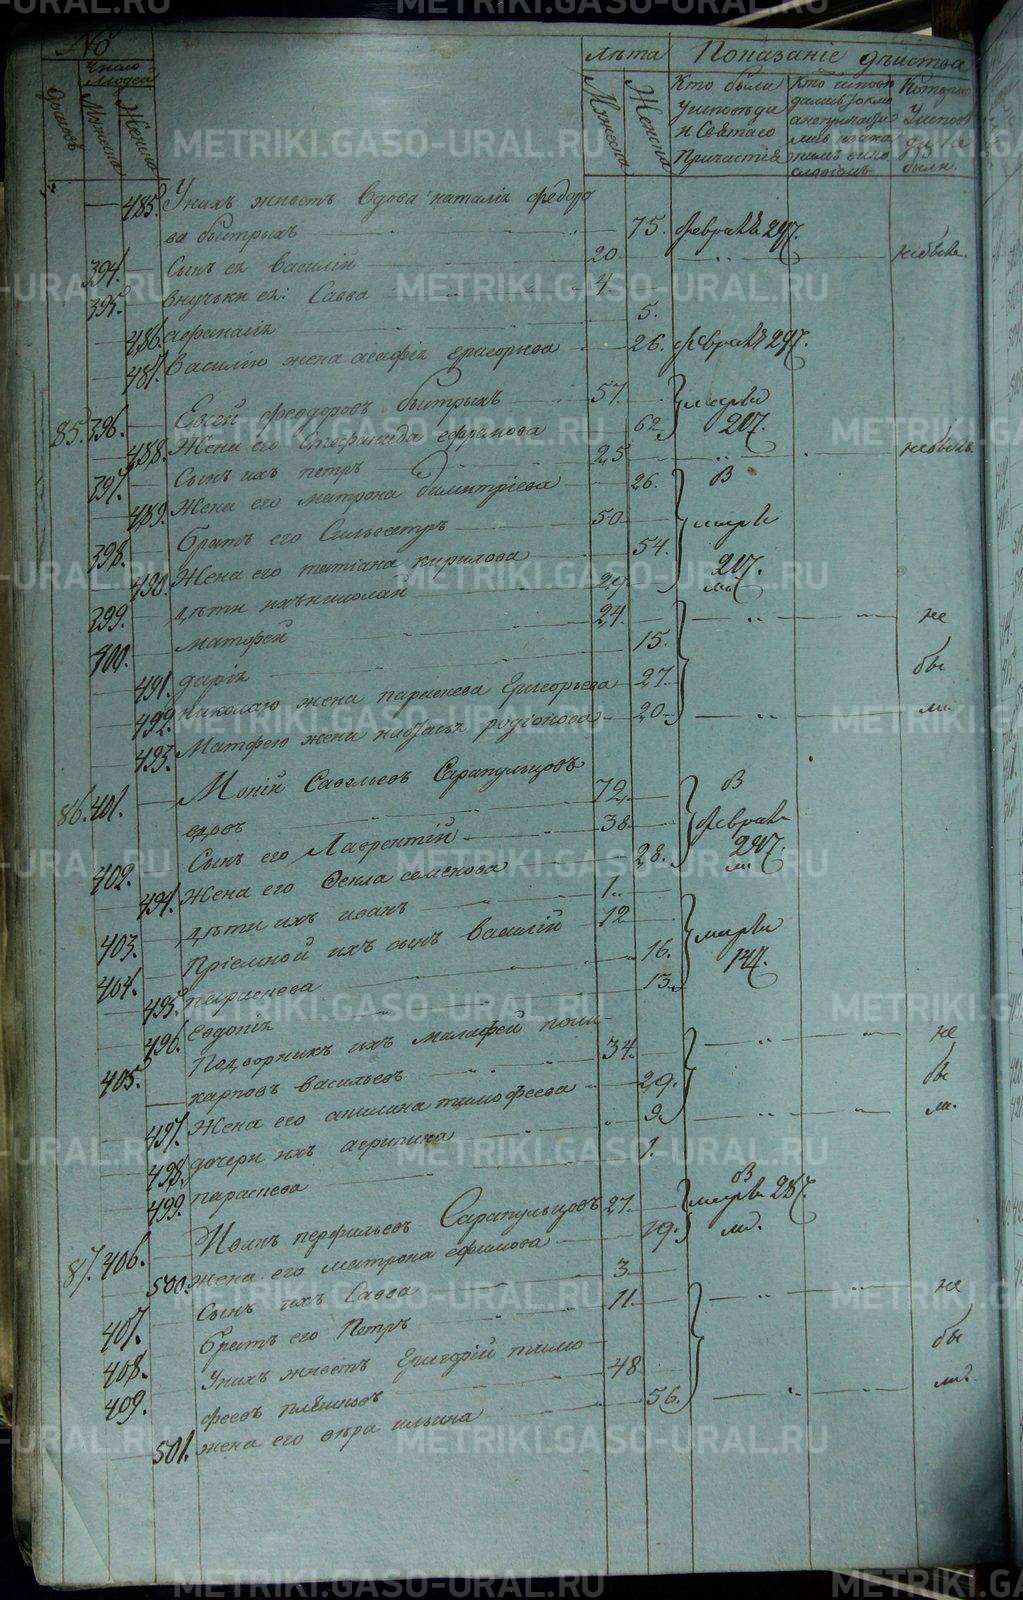 № Лѣта Показаніе дѣйства
домовъ
Число Людей
Мужеска
Женска
Мужеска
Женска
Кто были
У исповѣди
и Святаго
Причастія
Которые
У исповѣди не
были.
485. У нихъ живетъ вдова наталія федоро
ва быстрыхъ 75. февраля 24 ч.
394. Сынъ ея василій 20 небылъ.
395. внучьки ея: Савва 4
486. афанасія 5.
487. василію жена агафія григорьева 26. февраля 24 ч.
85. 396. Евсей феодоровъ быстрыхъ 57. марта
488. Жена его ефрамова 62 20 ч.
397. Сынъ ихъ петръ 25 небылъ.
489. Жена его матрона димитріева 26. В
398. братъ его Сильвестръ 50 марта
490. Жена его татіана кирилова 54. 20 ч.
399. дѣти ихъ николай 29
400. матфей 24 не
491. дарія 15.
492. николаю жена параскева григорьева 27 бы
493. Матфею жена родіонова 20 ли.
86. 401. Мокій Савельевъ Сарапульцовъ
вдовъ 72 В
402. Сынъ его Лаврентій 38 февраля
494. Жена его Фекла 28. 24 ч.
403. дѣти ихъ иванъ 1
404. Пріемной ихъ сынъ василій 12 марта
495. параскева 16. 14 ч.
496. Евдокія 13.
405. Подворникъ ихъ малафей поли
карповъ васильевъ 34 не
497. Жена его акилина тимофеева 29. бы
498. дочери ихъ агрипина 9 ли.
499. параскева 1.
87. 406. Иванъ перфильевъ Сарапульцовъ 27 В марта 28 ч.
500. жена его матрона ефимова 19.
407. Сынъ ихъ Савва 3
408. братъ его Петръ 11 не
409. У нихъ живетъ григорій тимо
феевъ 48 бы
501. жена его вѣра ильина 56. ли.
METRIKI.GASO-URAL.RU